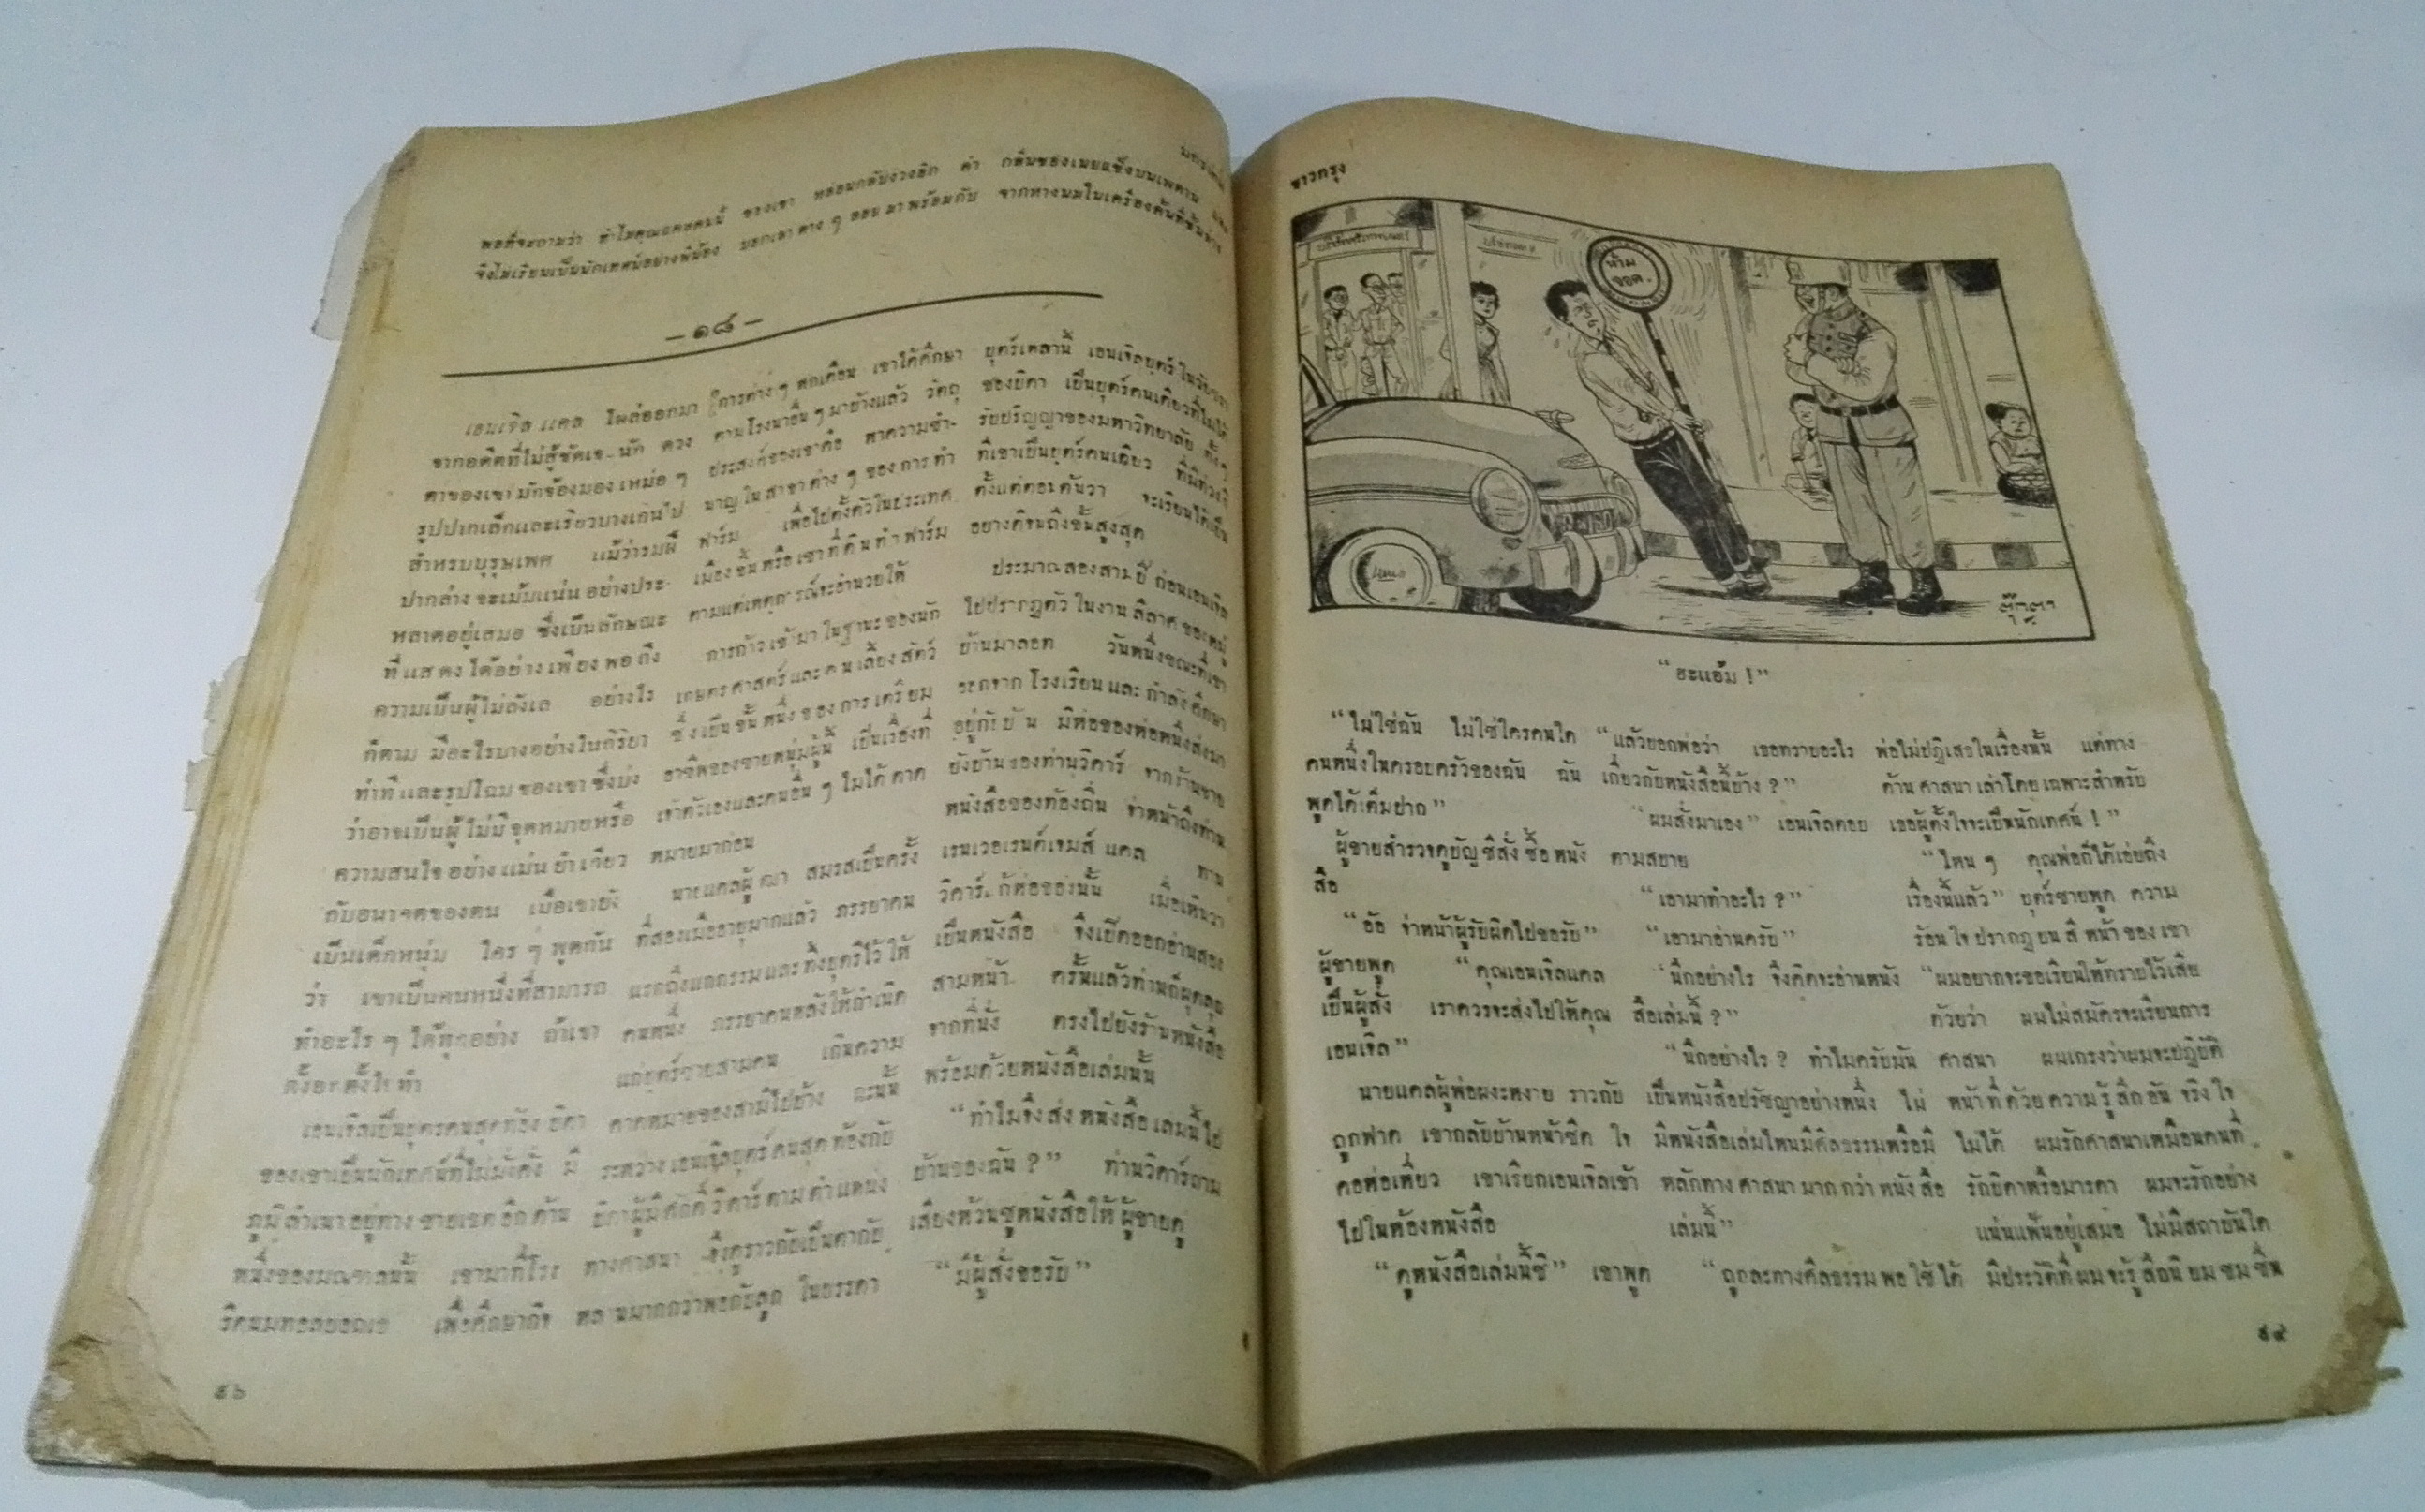 พอที่จะถามว่า ทำไมคุณแคลคนนี้
จึงไม่เรียนเป็นนักเทศน์อย่างพี่น้อง
ของเขา หล่อนกลับงวงอีก คำ
บอกเล่าต่าง ๆ ออกมาพร้อมกับ
กลิ่นของเนยแข็งบนเพดาน และ
—๑๘—
เอนเจิล แคล โผล่ออกมา
จากอดีตที่ไม่สู้ชัดเจนนัก ดวง
ตาของเขามักจ้องมองเหม่อ ๆ
รูปปากเล็กและเรียวบางเกินไป
สำหรับบุรุษเพศ แม้ว่าริมฝี
ปากล่างจะเม้มแน่นอย่างประ-
หลาดอยู่เสมอ ซึ่งเป็นลักษณะ
ที่แสดงได้อย่างเพียงพอถึง
ความเป็นผู้ไม่ลังเล อย่างไร
ก็ตาม มีอะไรบางอย่างในกิริยา
ท่าทีและรูปโฉมของเขาซึ่งบ่ง
ว่าอาจเป็นผู้ไม่มีจุดหมายหรือ
ความสนใจอย่างแม่นยำเกี่ยว
กับอนาคตของตน เมื่อเขายัง
เป็นเด็กหนุ่ม ใคร ๆ พูดกัน
ว่า เขาเป็นคนหนึ่งที่สามารถ
ทำอะไร ๆ ได้ทุกอย่าง ถ้าเขา
ตั้งอกตั้งใจทำ
เอนเจิลเป็นบุตรคนสุดท้อง บิดา
ของเขาเป็นนักเทศน์ที่ไม่มั่งคั่ง มี
ภูมิลำเนาอยู่ทางชายเขตอีกด้าน
หนึ่งของมณฑลนั้น เขามาที่โรง
รีดนมทอลบอเธ เพื่อศึกษากิจ
การต่าง ๆ หกเดือน เขาได้ศึกษา
ตามโรงนาอื่น ๆ มาบ้างแล้ว วัตถุ
ประสงค์ของเขาคือ หาความชำ-
นาญในสาขาต่าง ๆ ของการทำ
ฟาร์ม เพื่อไปตั้งตัวในประเทศ
เมืองขึ้นหรือเช่าที่ดินทำฟาร์ม
ตามแต่เหตุการณ์จะอำนวยให้
การก้าวเข้ามาในฐานะของนัก
เกษตรศาสตร์และคนเลี้ยงสัตว์
ซึ่งเป็นขั้นหนึ่งของการเตรียม
อาชีพของชายหนุ่มผู้นี้ เป็นเรื่องที่
เจ้าตัวเองและคนอื่น ๆ ไม่ได้คาด
หมายมาก่อน
นายแคลผู้เฒ่า สมรสเป็นครั้ง
ที่สองเมื่ออายุมากแล้ว ภรรยาคน
แรกถึงแก่กรรมและทิ้งบุตรีไว้ให้
คนหนึ่ง ภรรยาคนหลังให้กำเนิด
แก่บุตร์ชายสามคน เกินความ
คาดหมายของสามีไปบ้าง ฉะนั้น
ระหว่างเอนเจิลบุตร์คนสุดท้องกับ
บิดาผู้มีศักดิ์วิคาร์ตามตำแหน่ง
ทางศาสนา จึงดูราวกับเป็นตากับ
หลานมากกว่าพ่อกับลูก ในบรรดา
บุตร์เหล่านี้ เอนเจิลบุตร์ในวัยชรา
ของบิดา เป็นบุตร์คนเดียวที่ไม่ได้
รับปริญญาของมหาวิทยาลัย ทั้ง ๆ
ที่เขาเป็นบุตร์คนเดียว ที่มีท่วงที
ตั้งแต่ตอนต้นว่า จะเรียนได้เป็น
อย่างดีจนถึงขั้นสูงสุด
ประมาณสองสามปี ก่อนเอนเจิล
ไปปรากฏตัวในงานลีลาศของหมู่
บ้านมาลอต วันหนึ่งขณะที่เขา
ออกจากโรงเรียนและกำลังศึกษา
อยู่กับบ้าน มีห่อของห่อหนึ่งส่งมา
ยังบ้านของท่านวิคาร์ จากร้านขาย
หนังสือของท้องถิ่น จ่าหน้าถึงท่าน
เรเวอเรนด์เจมส์ แคล ท่าน
วิคาร์แก้ห่อของนั้น เมื่อเห็นว่า
เป็นหนังสือ จึงเปิดออกอ่านสอง
สามหน้า ครั้นแล้วท่านก็ผุดลุก
จากที่นั่ง ตรงไปยังร้านหนังสือ
พร้อมด้วยหนังสือเล่มนั้น
“ทำไมจึงส่งหนังสือเล่มนี้ไป
บ้านของฉัน ?” ท่านวิคาร์ถาม
เสียงห้วนชูหนังสือให้ผู้ขายดู
“มีผู้สั่งขอรับ”
๕๖
ชาวกรุง
ห้าม
จอด.
ตุ๊กตา
“ฮะแอ้ม !”
“ไม่ใช่ฉัน ไม่ใช่ใครคนใด
คนหนึ่งในครอบครัวของฉัน ฉัน
พูดได้เต็มปาก”
ผู้ขายสำรวจดูบัญชีสั่งซื้อหนัง
สือ
“อ้อ จ่าหน้าผู้รับผิดไปขอรับ”
ผู้ขายพูด “คุณเอนเจิลแคล
เป็นผู้สั่ง เราควรจะส่งไปให้คุณ
เอนเจิล”
นายแคลผู้พ่อผงะหงาย ราวกับ
ถูกฟาด เขากลับบ้านหน้าซีด ใจ
คอห่อเหี่ยว เขาเรียกเอนเจิลเข้า
ไปในห้องหนังสือ
“ดูหนังสือเล่มนี้ซิ” เขาพูด
“แล้วบอกพ่อว่า เธอทราบอะไร
เกี่ยวกับหนังสือนี้บ้าง ?”
“ผมสั่งมาเอง” เอนเจิลตอบ
ตามสบาย
“เอามาทำอะไร ?”
“เอามาอ่านครับ”
“นึกอย่างไร จึงคิดจะอ่านหนัง
สือเล่มนี้ ?”
“นึกอย่างไร ? ทำไมครับมัน
เป็นหนังสือปรัชญาอย่างหนึ่ง ไม่
มีหนังสือเล่มไหนมีศีลธรรมหรือมี
หลักทางศาสนามากกว่าหนังสือ
เล่มนี้”
“ถูกละทางศีลธรรมพอใช้ได้
พ่อไม่ปฏิเสธในเรื่องนั้น แต่ทาง
ด้านศาสนาเล่าโดยเฉพาะสำหรับ
เธอผู้ตั้งใจจะเป็นนักเทศน์ !”
“ไหน ๆ คุณพ่อก็ได้เอ่ยถึง
เรื่องนี้แล้ว” บุตร์ชายพูด ความ
ร้อนใจปรากฏบนสีหน้าของเขา
“ผมอยากจะขอเรียนให้ทราบไว้เสีย
ด้วยว่า ผมไม่สมัครจะเรียนการ
ศาสนา ผมเกรงว่าผมจะปฏิบัติ
หน้าที่ด้วยความรู้สึกอันจริงใจ
ไม่ได้ ผมรักศาสนาเหมือนคนที่
รักบิดาหรือมารดา ผมจะรักอย่าง
แน่นแฟ้นอยู่เสมอ ไม่มีสถาบันใด
มีประวัติที่ผมจะรู้สึกนิยมชมชื่น
๕๙